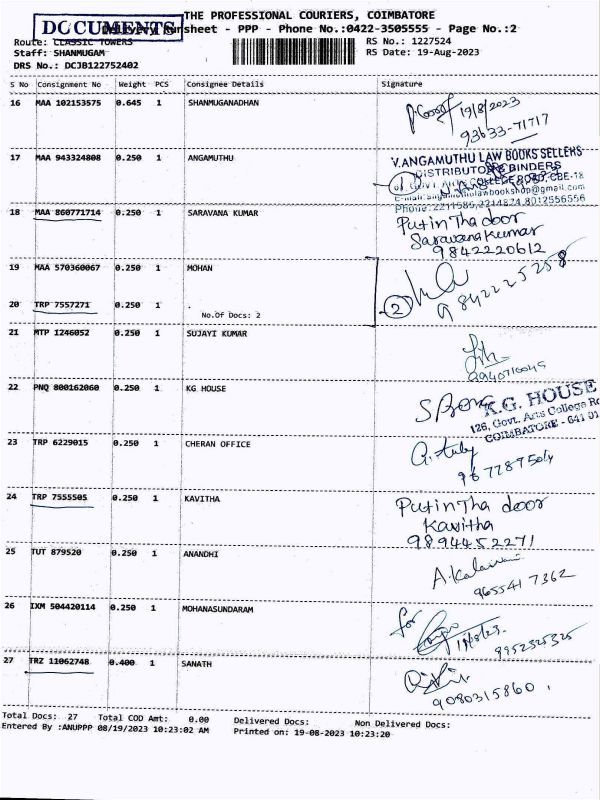 THE PROFESSIONAL COURIERS, COIMBATORE
DOCUMENTS
Delivery Runsheet - PPP - Phone No.:0422-3505555 - Page No.:2
Route: CLASSIC TOWERS
RS No.: 1227524
Staff: SHANMUGAM
RS Date: 19-Aug-2023
DRS No.: DCJB122752402
S No Consignment No Weight PCS Consignee Details Signature
16 MAA 102153575 0.645 1 SHANMUGANADHAN
19/8/2023
93633-71717
17 MAA 943324808 0.250 1 ANGAMUTHU
V.ANGAMUTHU LAW BOOKS SELLERS
DISTRIBUTORS BINDERS
COLLEGE ROAD, CBE-18
Phone: 2211585,2314824,8012556556
18 MAA 860771714 0.250 1 SARAVANA KUMAR
Put in Tha door
Saravanakumar
9842220612
19 MAA 570360067 0.250 1 MOHAN
9842225258
20 TRP 7557271 0.250 1 .
No.Of Docs: 2
2
21 MTP 1246052 0.250 1 SUJAYI KUMAR
9940710045
22 PNQ 800162060 0.250 1 KG HOUSE
K.G. HOUSE
126, Govt. Arts College Ro
COIMBATORE - 641 01
23 TRP 6229015 0.250 1 CHERAN OFFICE
9677897504
24 TRP 7555505 0.250 1 KAVITHA
Put in Tha door
Kavitha
9894452271
25 TUT 879520 0.250 1 ANANDHI
A.Kalaivani
9655417362
26 IXM 504420114 0.250 1 MOHANASUNDARAM
for
9952325325
27 TRZ 11062748 0.400 1 SANATH
9080315860
Total Docs: 27 Total COD Amt: 0.00 Delivered Docs: Non Delivered Docs:
Entered By :ANUPPP 08/19/2023 10:23:02 AM Printed on: 19-08-2023 10:23:20